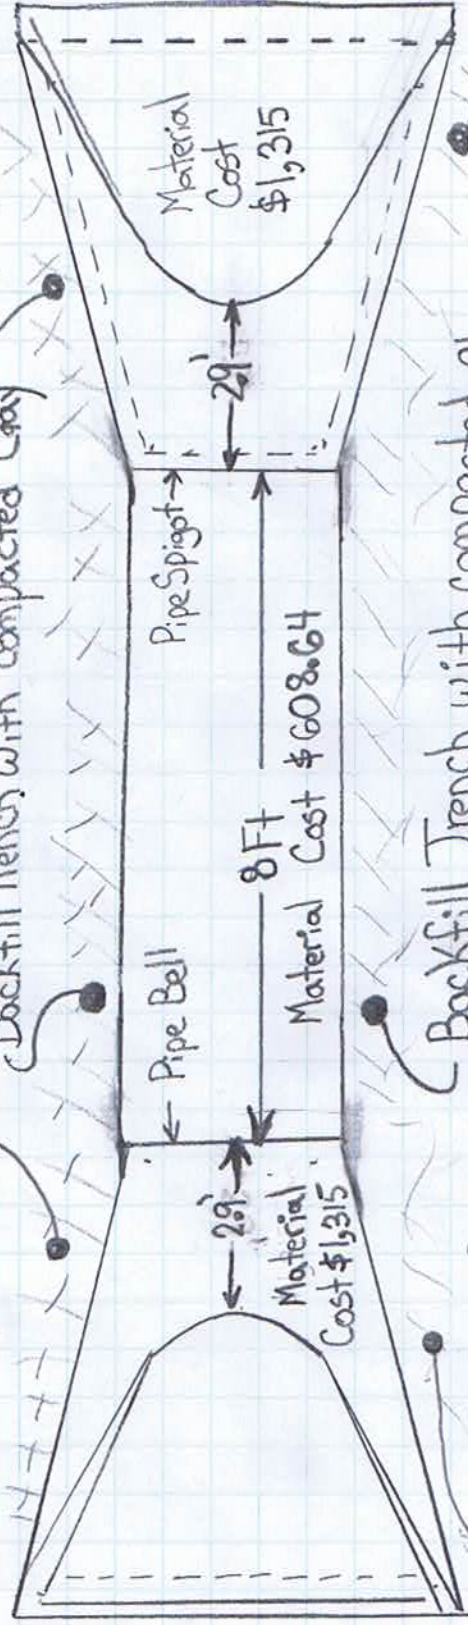 Backfill Trench with Compacted Clay
Material
Cost
$1,315
2.9'
Pipe Spigot
Pipe Bell
8Ft
Material Cost $608.64
2.9'
Material
Cost $1,315
Backfill Trench with compacted